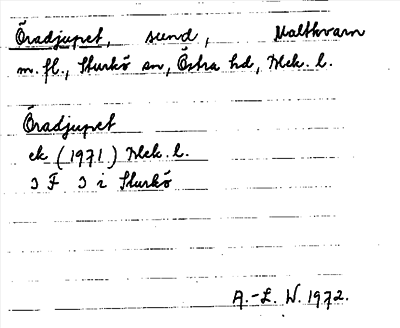 Öradjupet, sund, Maltkvarn
m.fl., Sturkö sn, Östra hd, Blek. l.
Öradjupet
ek (1971) Blek. l.
3 F 3 i Sturkö
A.-L. W. 1972.